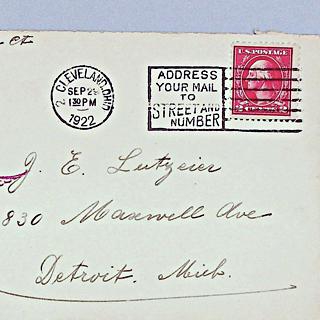 2. CLEVELAND, OHIO
SEP 29
1 30 PM
1922
ADDRESS
YOUR MAIL
TO
STREET AND
NUMBER
U.S. POSTAGE
J. E. Lutzeier
830 Maxwell Ave
Detroit. Mich.